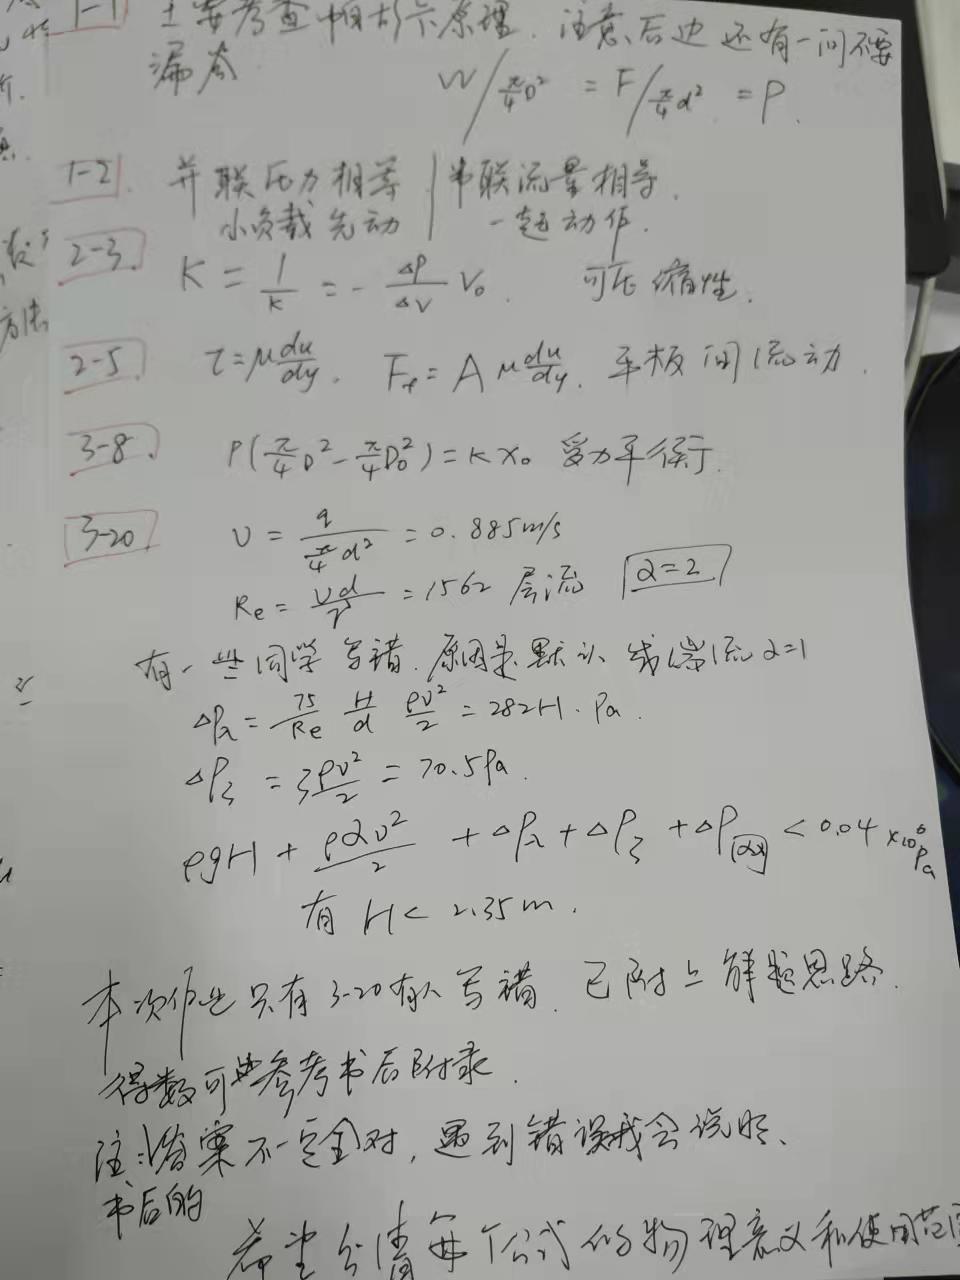 1-1 主要考查帕斯卡原理. 注意后边还有一问不要
漏答 W/π/4D² = F/π/4d² = P.
1-2 并联压力相等 | 串联流量相等.
小负载先动 | 一起动作.
2-3 K = 1/κ = - ΔP/ΔV V₀. 可压缩性.
2-5 τ=μdu/dy. Ff= A μdu/dy. 平板间流动.
3-8 P(π/4D²-π/4D₀²)=Kx₀ 受力平衡.
3-20 υ = q/π/4d² = 0.885m/s
Re = υd/ν = 1562 层流 α=2
有一些同学写错. 原因是默认 紊流α=1
ΔPλ = 75/Re H/d ρυ²/2 = 282H·Pa.
ΔPζ = ζρυ²/2 = 70.5Pa.
ρgH + ραυ²/2 + ΔPλ + ΔPζ + ΔP网 < 0.04×10⁶Pa
有 H< 2.35m.
本次作业只有3-20有人写错. 已附上解题思路.
得数可参考书后附录.
注:答案不一定全对, 遇到错误我会说明、
书后的
希望分清每个公式的物理意义和使用范围